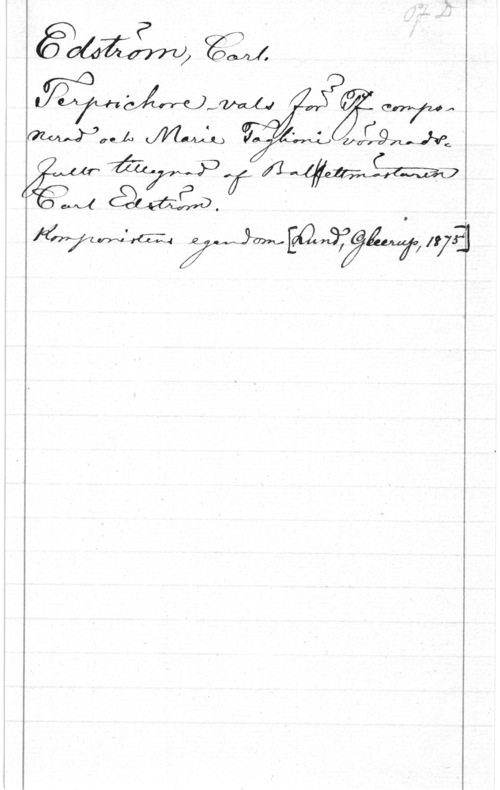 Pf D
Edström, Carl.
Terpsichore-vals för Pf compo-
nerad och Marie Taglioni vördnads-
fullt tillegnad af Balettmästaren
Carl Edström.
Komponistens egendom [Lund, Gleerup, 1875]